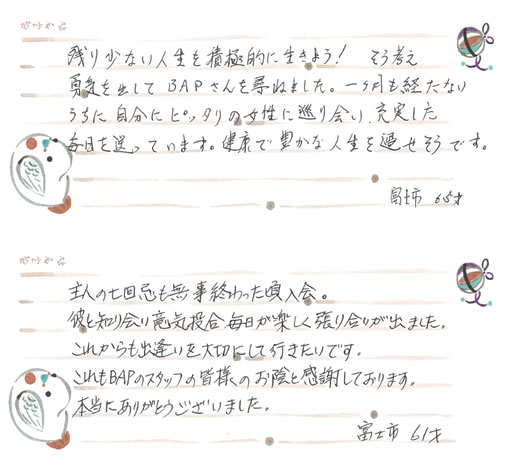 残り少ない人生を積極的に生きよう! そう考え
勇気を出して BAPさんを尋ねました。一ヶ月も経たない
うちに自分にピッタリの女性に巡り会い、充実した
毎日を送っています。健康で豊かな人生を過せそうです。
富士市 65才
主人の七回忌も無事終わった頃入会。
彼と知り合い意気投合、毎日が楽しく張り合いが出ました。
これからも出逢いを大切にして行きたいです。
これもBAPのスタッフの皆様のお陰と感謝しております。
本当にありがとうございました。
富士市 61才